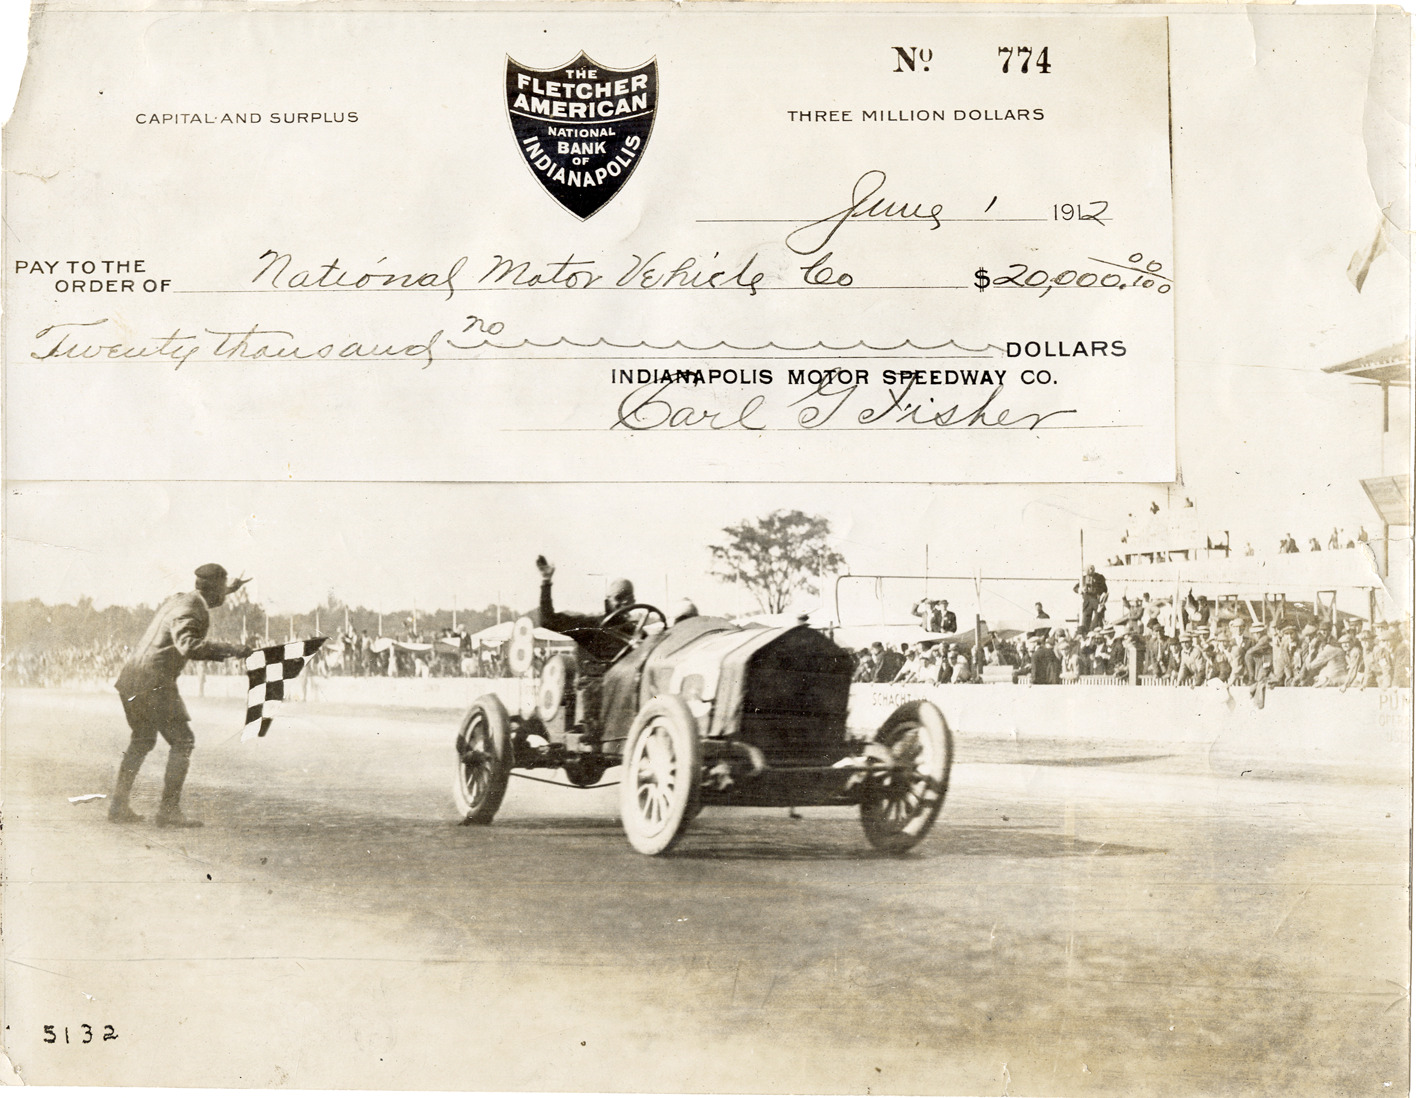 Nº 774
CAPITAL AND SURPLUS
THE
FLETCHER
AMERICAN
NATIONAL
BANK
OF
INDIANAPOLIS
THREE MILLION DOLLARS
June 1 1912
PAY TO THE
ORDER OF National Motor Vehicle Co $20,000.00/100
Twenty thousand no DOLLARS
INDIANAPOLIS MOTOR SPEEDWAY CO.
Carl G Fisher
8
8
SCHACHT
5132